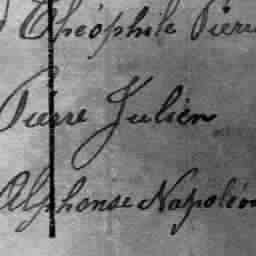 Théophile Pierre
Pierre Julien
Alphonse Napoléon